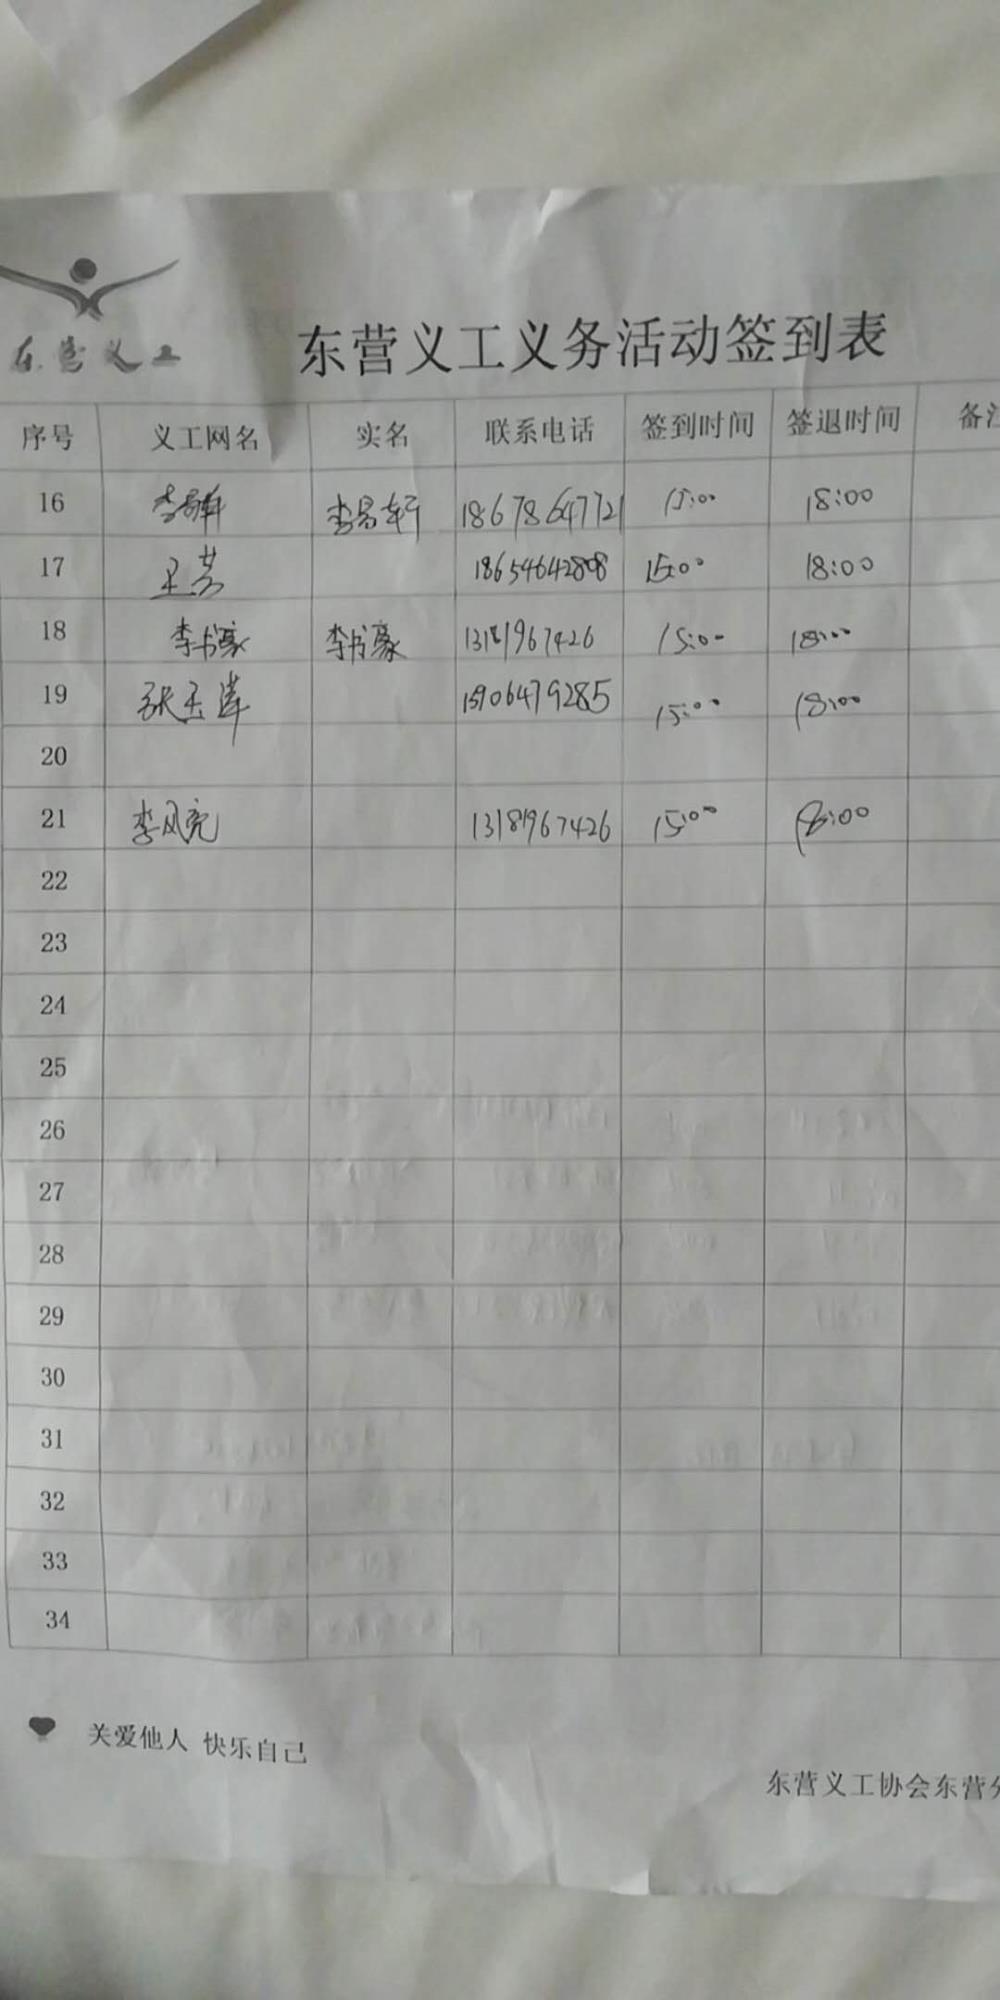 东营义工
东营义工义务活动签到表
序号 义工网名 实名 联系电话 签到时间 签退时间 备注
16 李易轩 李易轩 18678647721 15:00 18:00
17 王芸 18654642808 15:00 18:00
18 李书豪 李书豪 13181967426 15:00 18:00
19 张玉萍 15906479285 15:00 18:00
20
21 李风亮 13181967426 15:00 18:00
22
23
24
25
26
27
28
29
30
31
32
33
34
关爱他人 快乐自己
东营义工协会东营分